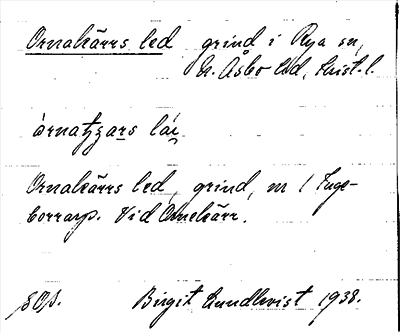 Ornakärrs led grind i Rya sn,
N. Åsbo hd, Krist. l.
Ornakärrs led, grind, nr 1 Inge-
borrarp. Vid Ornekärr.
Birgit Lundkvist 1938.